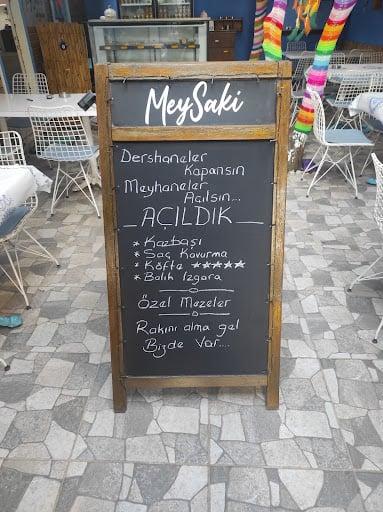 MeySaki
Dershaneler
Kapansın
Meyhaneler
Açılsın...
AÇILDIK
* Kazbaşı
* Saç Kavurma
* Köfte ★★★★★
* Balık Izgara
Özel Mezeler
Rakını alma gel
Bizde Var....